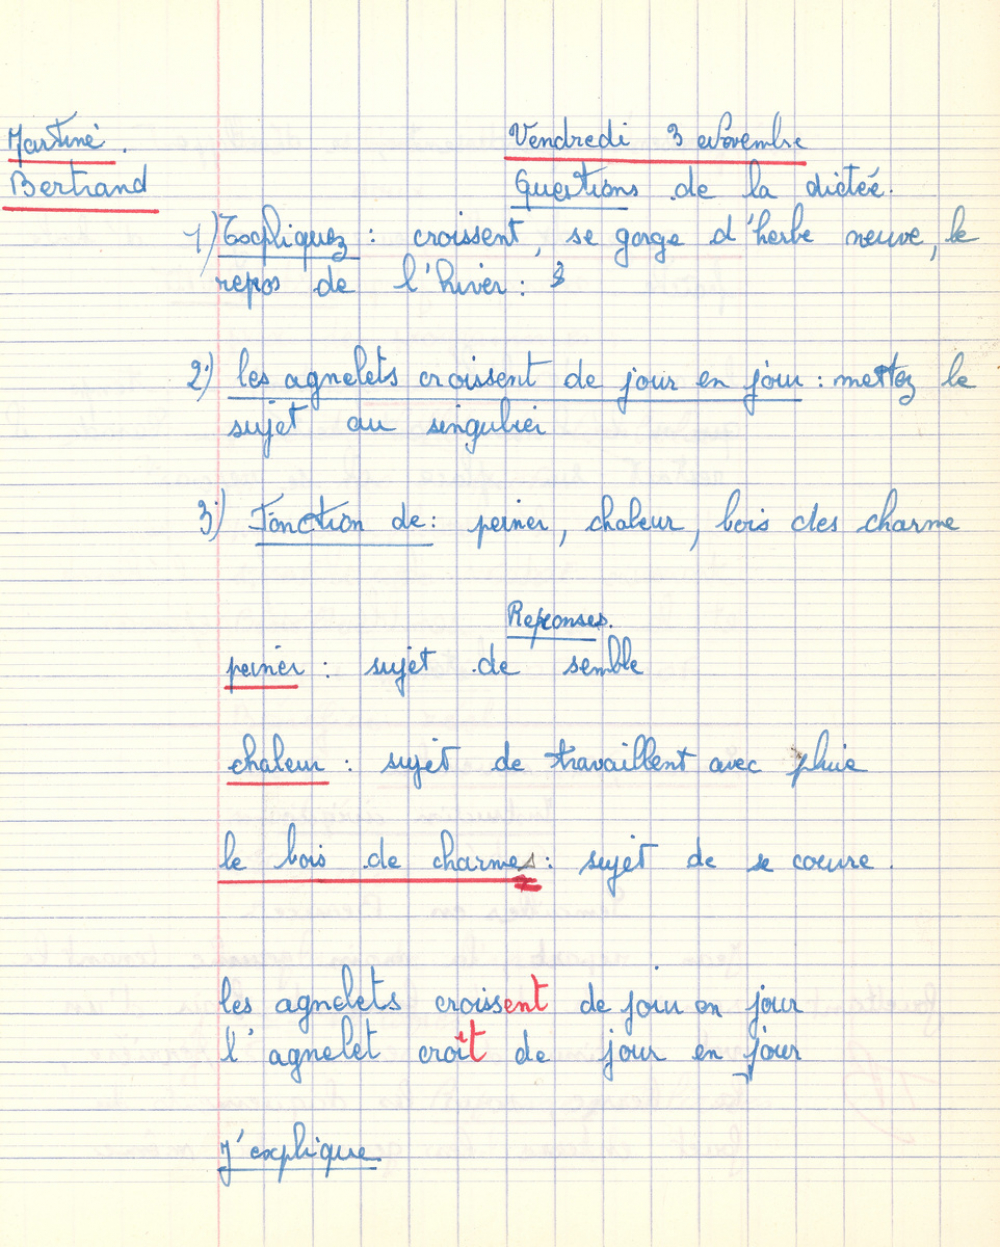 Martine. Vendredi 3 Novembre
Bertrand Questions de la dictée.
1) Expliquez : croissent, se gorge d'herbe neuve, le
repos de l'hiver :
2) les agnelets croissent de jour en jour : mettez le
sujet au singulier
3) Fonction de : peiner, chaleur, bois des charme
Reponses.
peiner : sujet de semble
chaleur : sujet de travaillent avec pluie
le bois de charmes : sujet de se couvre.
les agnelets croissent de jour en jour
l'agnelet croît de jour en jour
J'explique